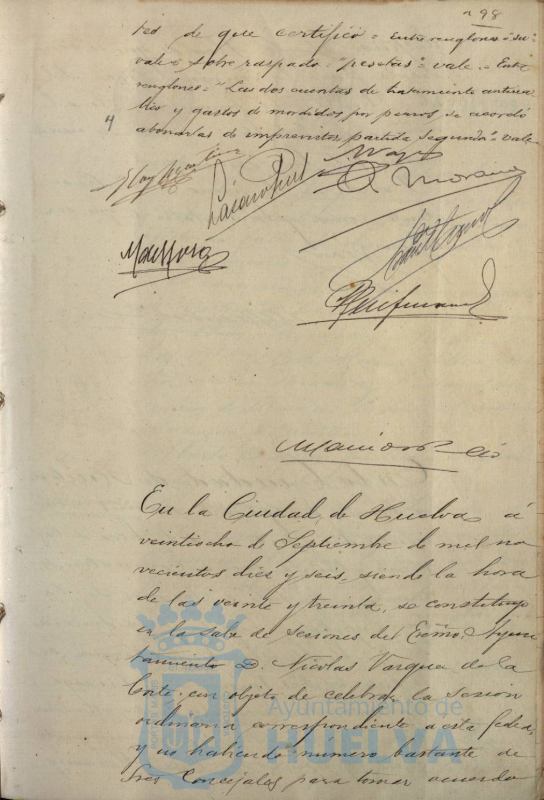 98
tes de que certifico = Entre renglones = su =
vale = sobre raspado = "pesetas" = vale = Entre
renglones = "Las dos cuentas de tratamiento antirra-
bico y gastos de mordidos por perros, se acordó
abonarlas de imprevistos, partida segunda" = vale
4
O. Moreno
En la Ciudad de Huelva á
veintiocho de Septiembre de mil no
vecientos diez y seis, siendo la hora
de las veinte y treinta, se constituyo
en la sala de sesiones del Excmo. Ayun
tamiento D. Nicolas Vazquez de la
Corte, con objeto de celebrar la sesion
ordinaria correspondiente a esta fecha,
y no habiendo numero bastante de
Sres Concejales para tomar acuerdo
Ayuntamiento de
HUELVA